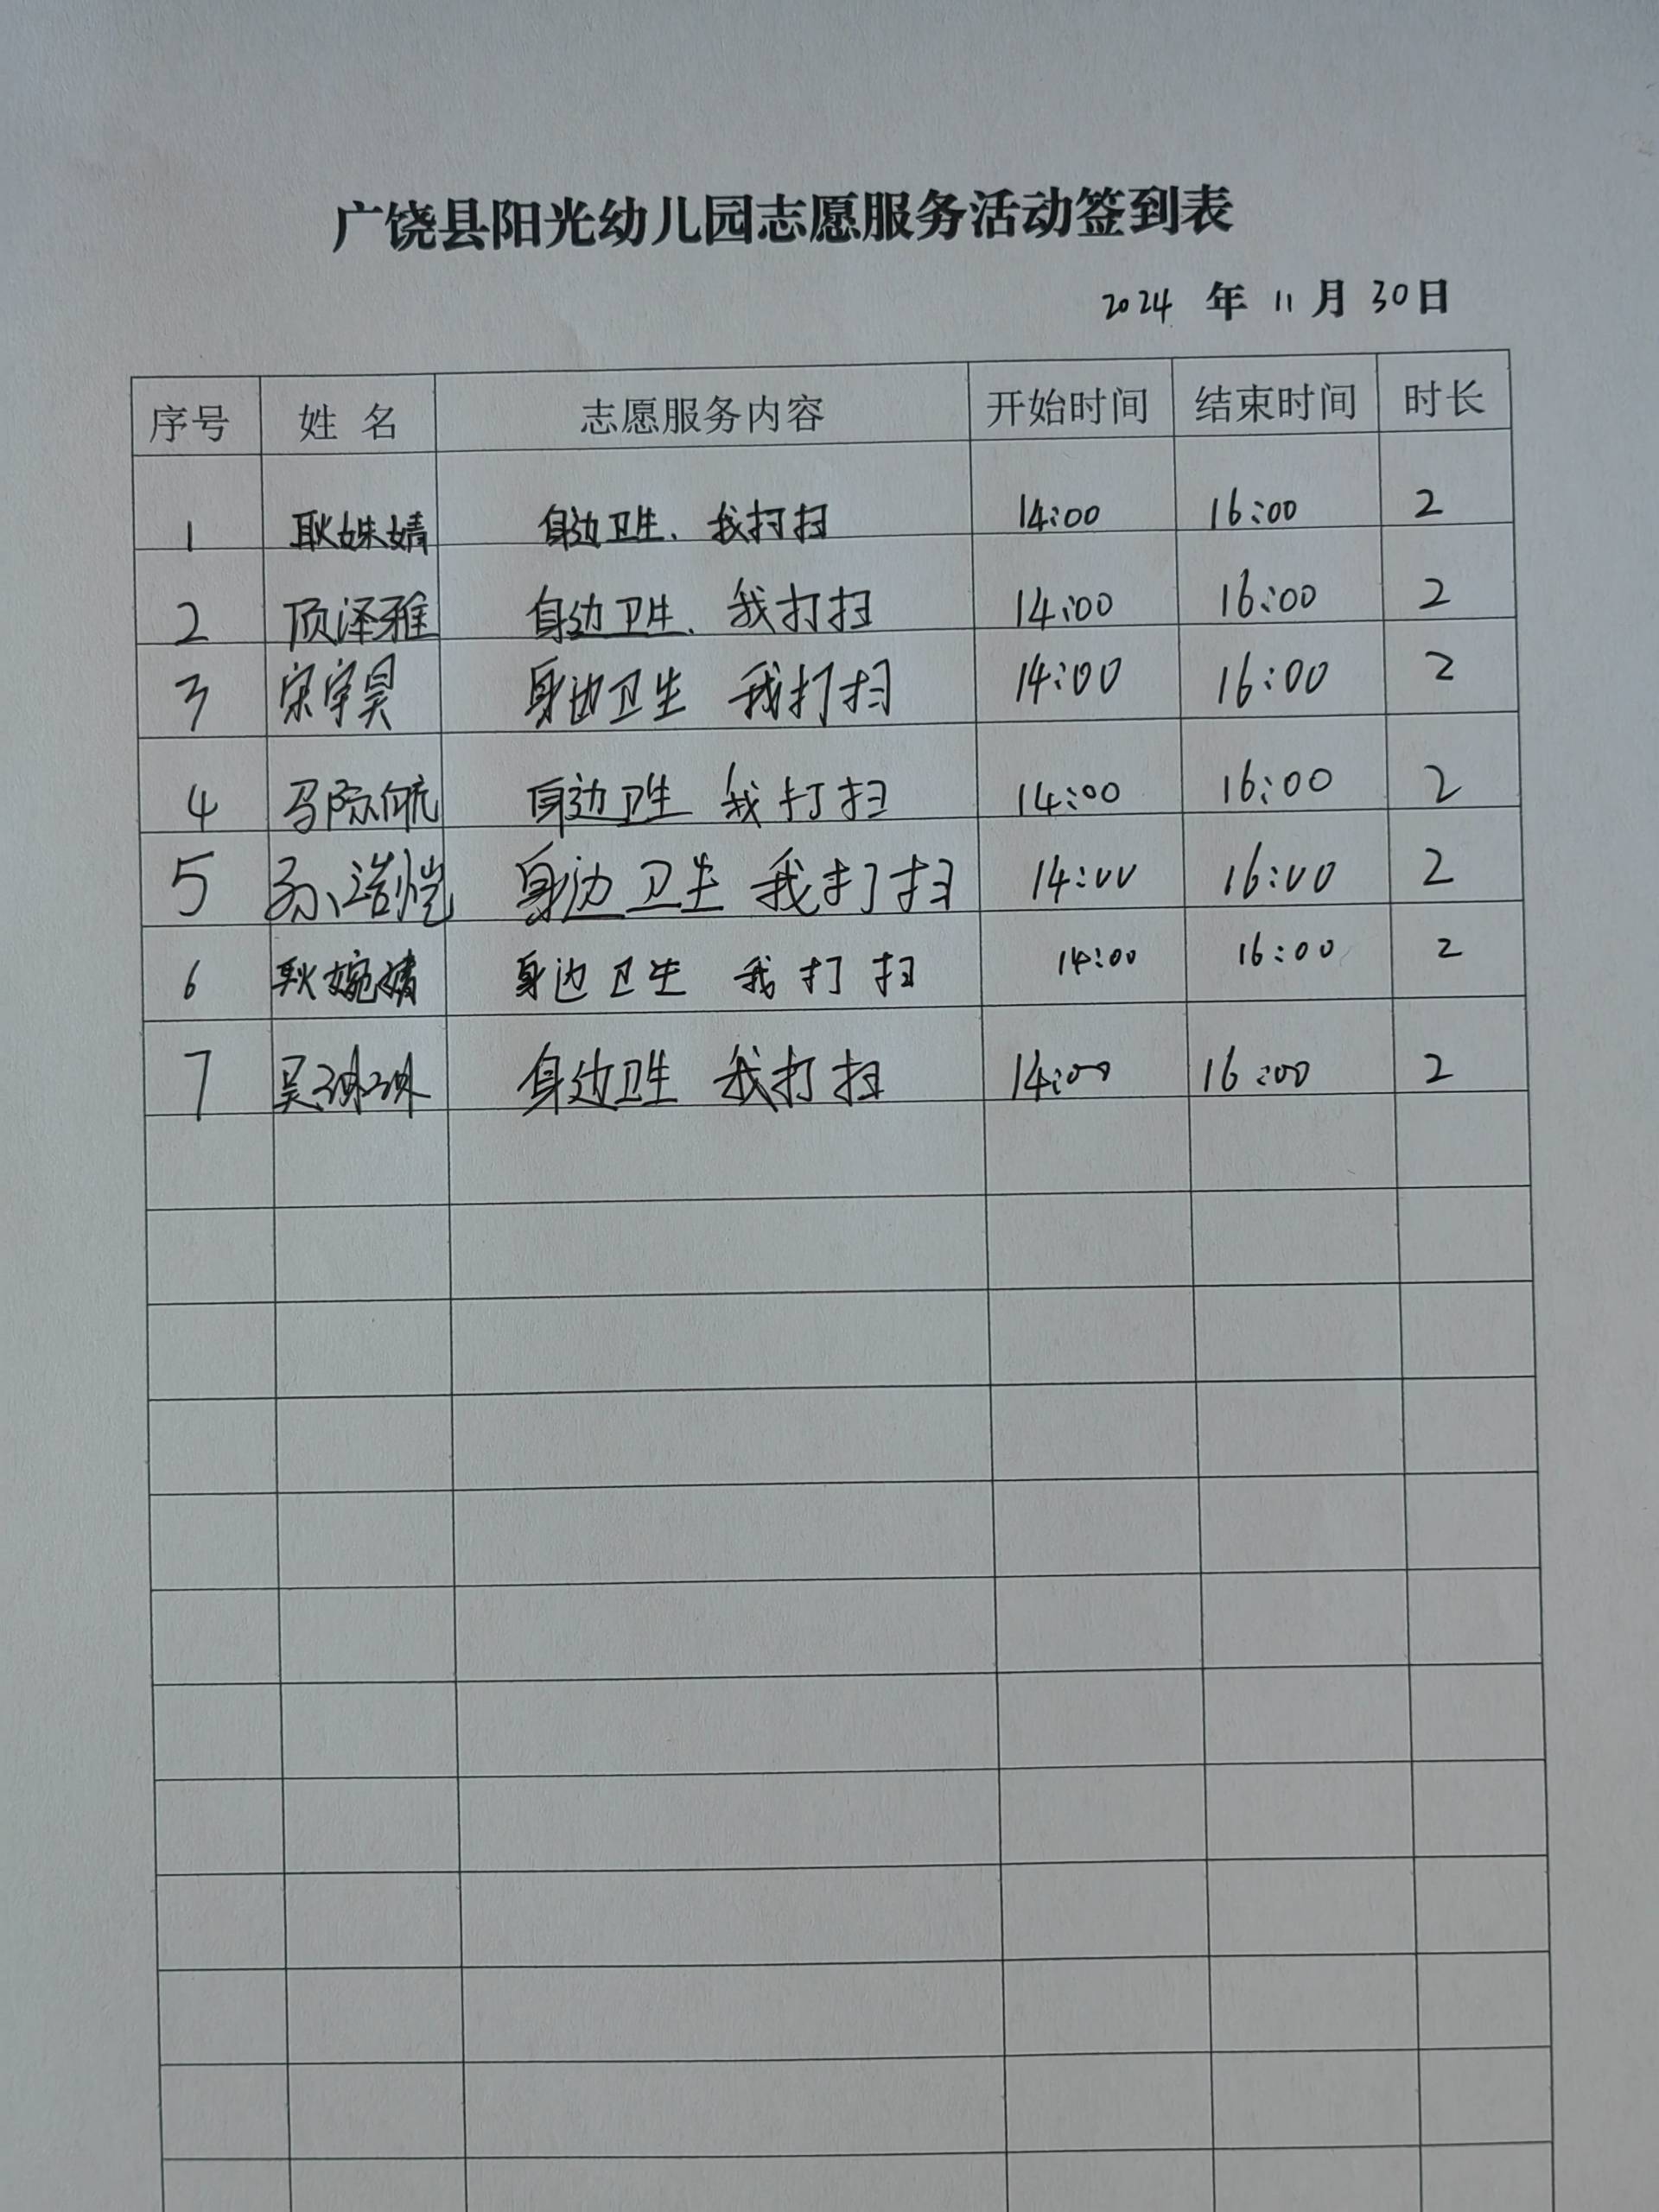 广饶县阳光幼儿园志愿服务活动签到表
2024 年 11 月 30日
序号 姓名 志愿服务内容 开始时间 结束时间 时长
1 耿姝婧 身边卫生、我打扫 14:00 16:00 2
2 泽雅 身边卫生、我打扫 14:00 16:00 2
3 宋宇昊 身边卫生 我打扫 14:00 16:00 2
4 马 航 身边卫生 我打扫 14:00 16:00 2
5 孙浩恺 身边卫生 我打扫 14:00 16:00 2
6 耿婉婧 身边卫生 我打扫 14:00 16:00 2
7 吴琳琳 身边卫生 我打扫 14:00 16:00 2